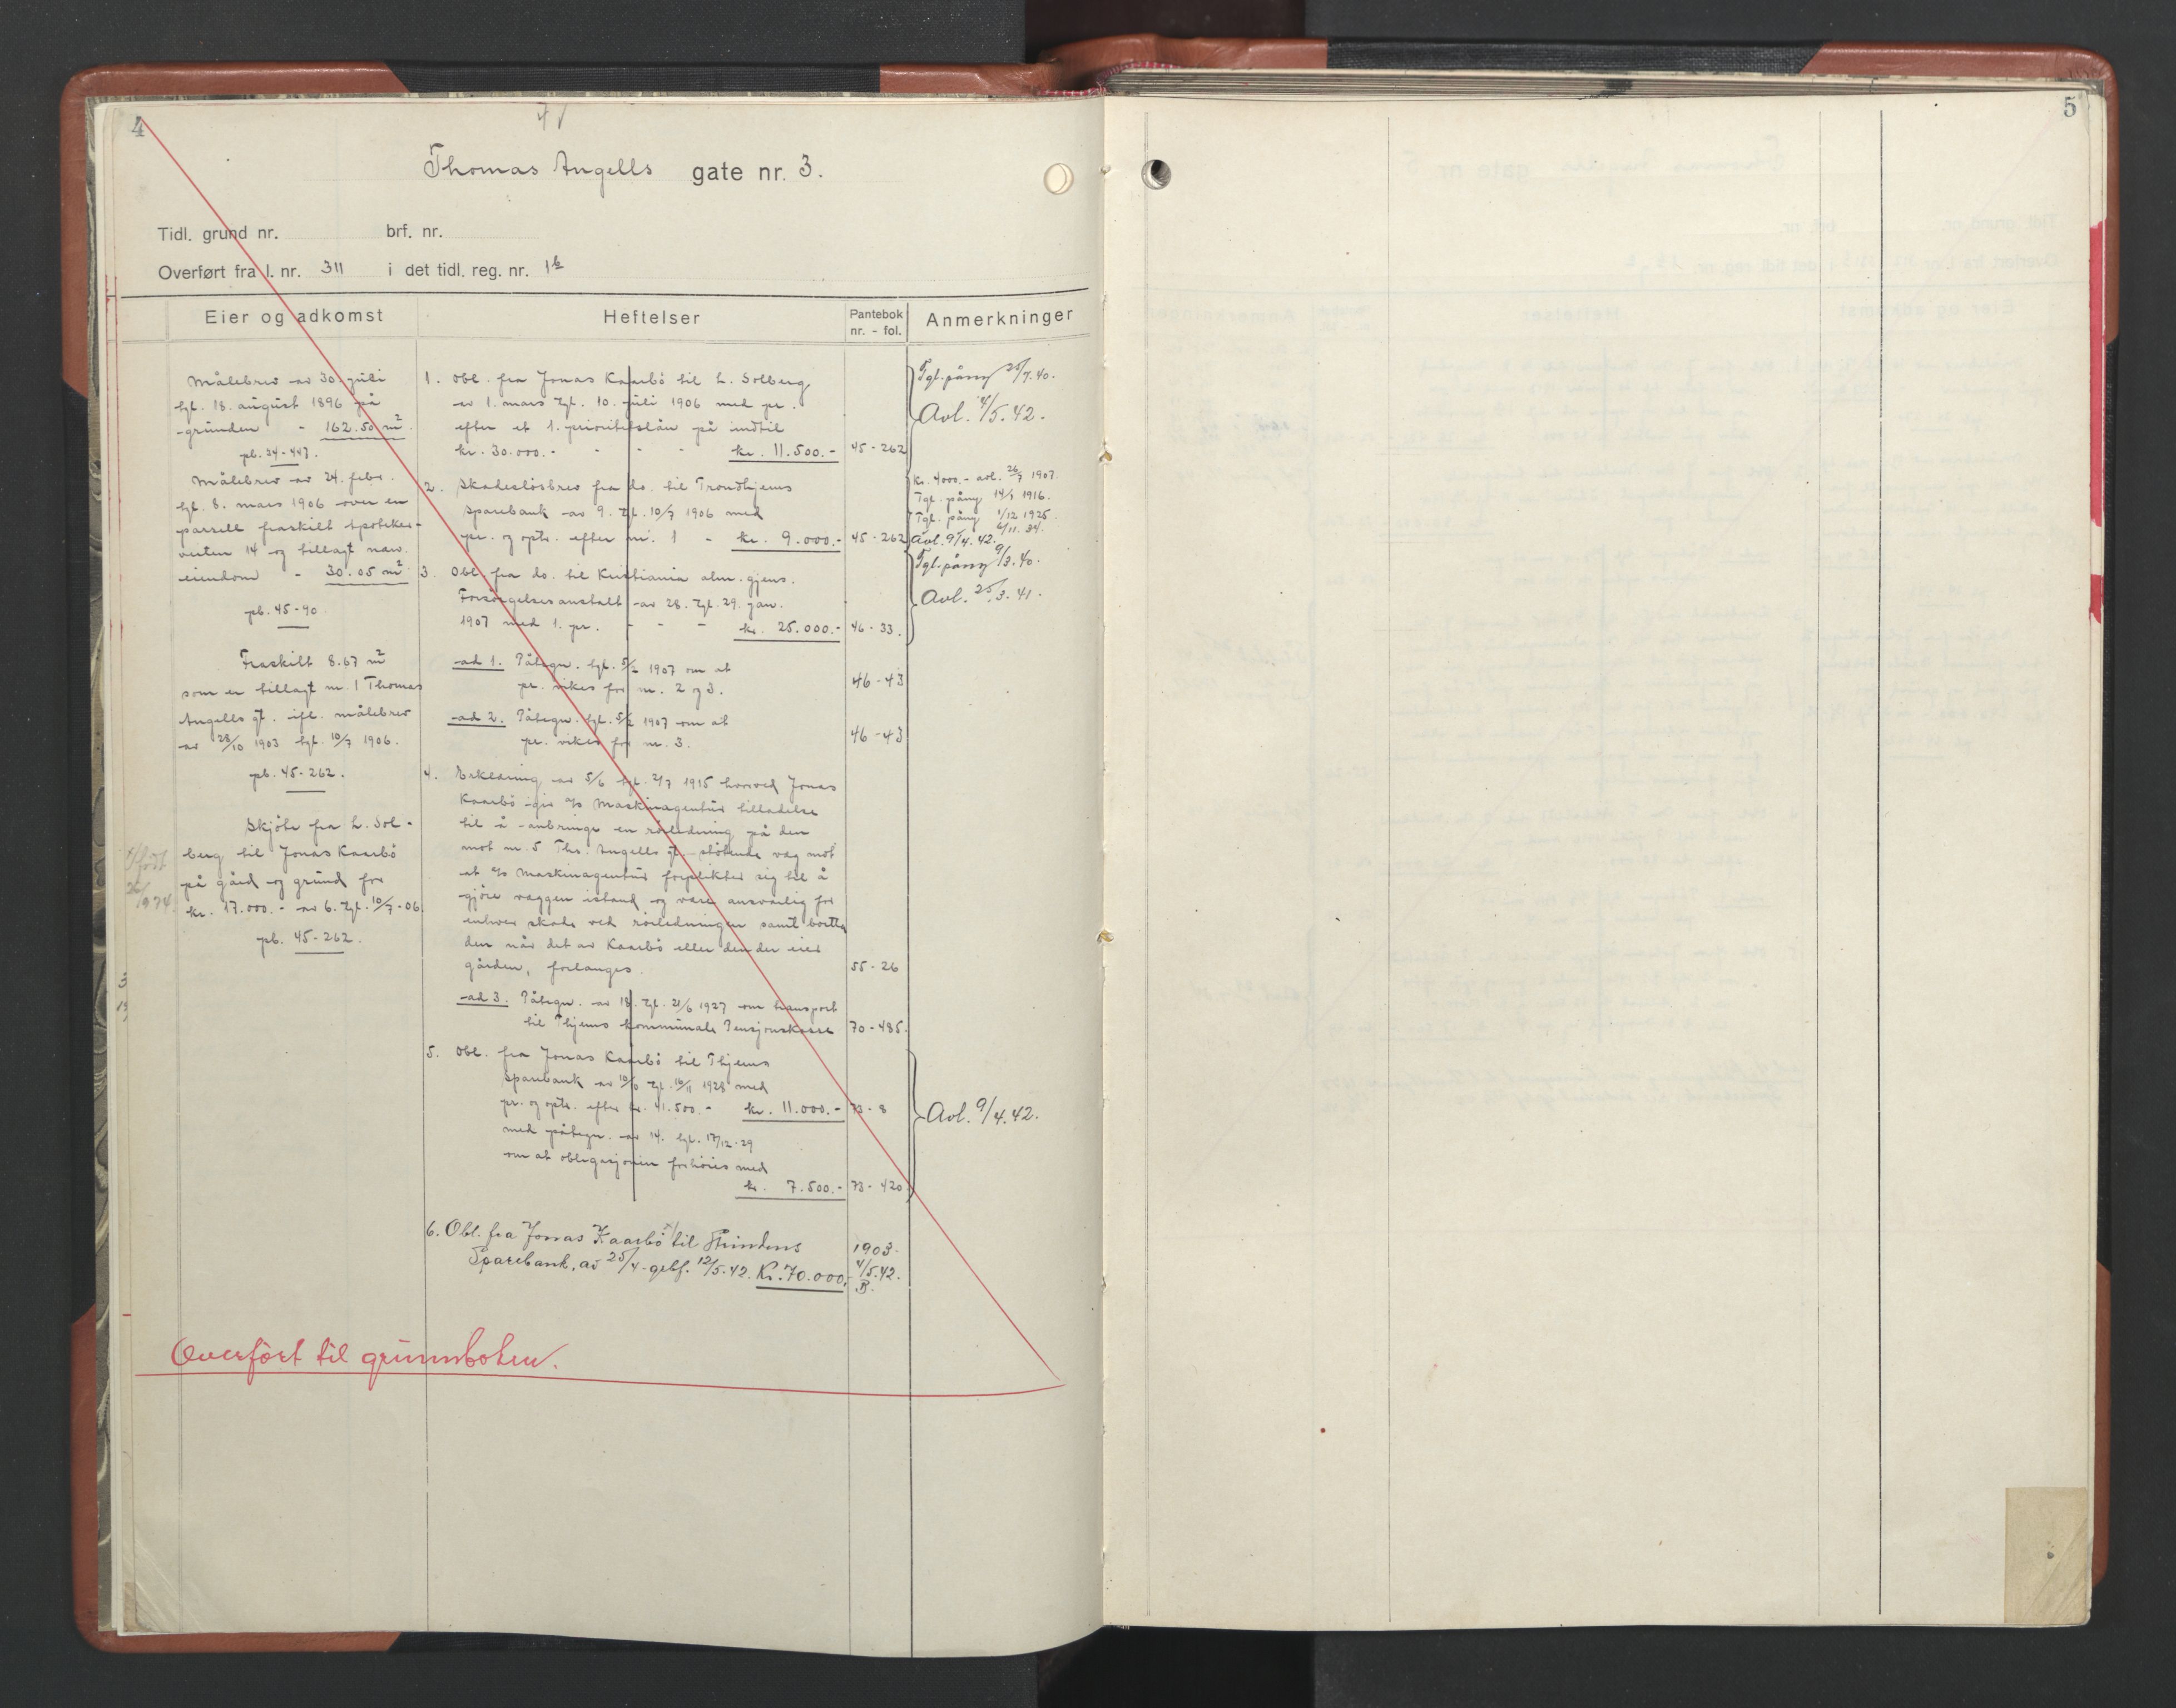 4
Thomas Angells gate nr. 3.
Tidl. grund nr. brf. nr.
Overført fra l. nr. 311 i det tidl. reg. nr. 1b
Eier og adkomst
Målebrev av 30. juli
tgl. 18. august 1896 på
grunden - 162.50 m²
pb. 24-447.
Målebrev av 24. febr.
tgl. 8. mars 1906 over en
parsell fraskilt Apoteker-
veiten 14 og tillagt nærv.
eiendom - 30.05 m²
pb. 45-90
Fraskilt 8.67 m²
som er tillagt nr. 1 Thomas
Angells gt. ifl. målebrev
av 28/10 1903 tgl. 10/7 1906.
pb. 45-262.
Skjöte fra L. Sol-
berg til Jonas Kaarbö
på gård og grund for
kr. 17.000.- av 6. tgl. 10/7-06
pb. 45-262.
Heftelser
Pantebok
nr. - fol.
1. Obl. fra Jonas Kaarbö til L. Solberg
av 1. mars tgl. 10. juli 1906 med pr.
efter et 1. prioritetslån på indtil
kr. 30.000.- - - - kr. 11.500.- 45-262
2. Skadeslösbrev fra do. til Trondhjems
Sparebank av 9. tgl. 10/7 1906 med
pr. og optr. efter nr. 1 - kr. 9.000.- 45-262
3. Obl. fra do. til Kristiania alm. gjens.
Forsörgelsesanstalt av 28. tgl. 29. jan.
1907 med 1. pr. - - - kr. 25.000.- 46-33.
ad 1. Påtegn. tgl. 5/2 1907 om at
pr. vikes for nr. 2 og 3. 46-43
ad 2. Påtegn. tgl. 5/2 1907 om at
pr. vikes for nr. 3. 46-43
4. Erklæring av 5/6 tgl. 2/7 1915 hvorved Jonas
Kaarbö gir A/s Maskinagentur tilladelse
til å anbringe en rörledning på den
mot nr. 5 Ths. Angells gt. stötende væg mot
at A/s Maskinagentur forplikter sig til å
gjöre væggen istand og være ansvarlig for
enhver skade ved rörledningen samt bortta
den når det av Kaarbö eller den der eier
gården, forlanges. 55-26
ad 3. Påtegn. av 18. tgl. 21/6 1927 om transport
til Thjems kommunale Pensjonskasse 70-485.
5. Obl. fra Jonas Kaarbö til Thjems
Sparebank av tgl. 16/11 1928 med
pr. og optr. efter kr. 41.500.- kr. 11.000.- 73-8
med påtegn. av 14. tgl. 17/12-29
om at obligasjonen forhöies med
kr. 7.500.- 73-420
6. Obl. fra Jonas Kaarbö til Strindens
Sparebank, av 25/4-gebf. 12/5.42. Kr. 70.000,- 1903-
4/5.42.
B.
Anmerkninger
Tgl. påny 25/7.40.
Avl. 4/5.42.
Kr. 4000.- avl. 26/7 1907.
Tgl. påny 14/3 1916.
Tgl. påny 1/12 1925.
6/11.34.
Avl. 9/4.42.
Tgl. påny 9/3.40.
Avl. 25/3.41.
Avl. 9/4.42.
Overfört til grunnboken.
5